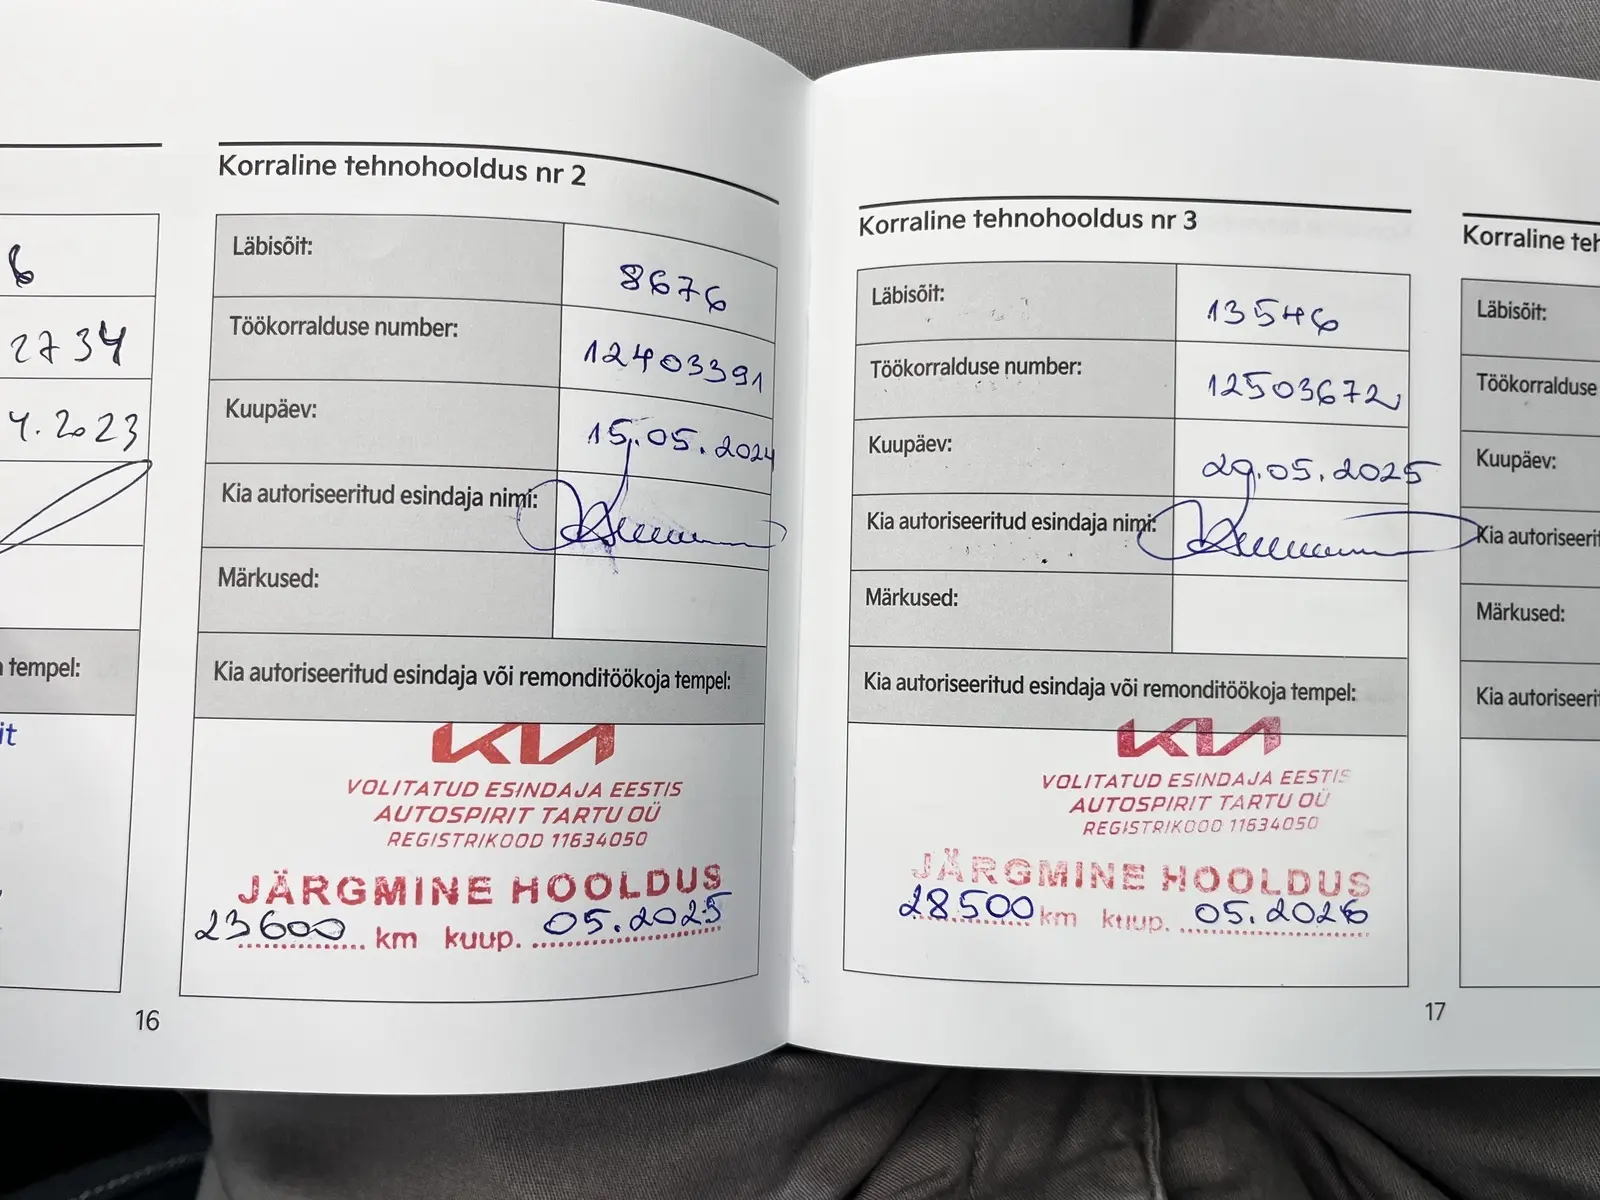 6
2734
4.2023
tempel:
it
16
Korraline tehnohooldus nr 2
Läbisõit: 8676
Töökorralduse number: 12403391
Kuupäev: 15.05.2024
Kia autoriseeritud esindaja nimi:
Märkused:
Kia autoriseeritud esindaja või remonditöökoja tempel:
KIA
VOLITATUD ESINDAJA EESTIS
AUTOSPIRIT TARTU OÜ
REGISTRIKOOD 11634050
JÄRGMINE HOOLDUS
23600 km kuup. 05.2025
Korraline tehnohooldus nr 3
Läbisõit: 13546
Töökorralduse number: 12503672
Kuupäev: 29.05.2025
Kia autoriseeritud esindaja nimi:
Märkused:
Kia autoriseeritud esindaja või remonditöökoja tempel:
KIA
VOLITATUD ESINDAJA EESTIS
AUTOSPIRIT TARTU OÜ
REGISTRIKOOD 11634050
JÄRGMINE HOOLDUS
28500 km kuup. 05.2026
17
Korraline teh
Läbisõit:
Töökorralduse
Kuupäev:
Kia autoriseerit
Märkused:
Kia autoriseerit